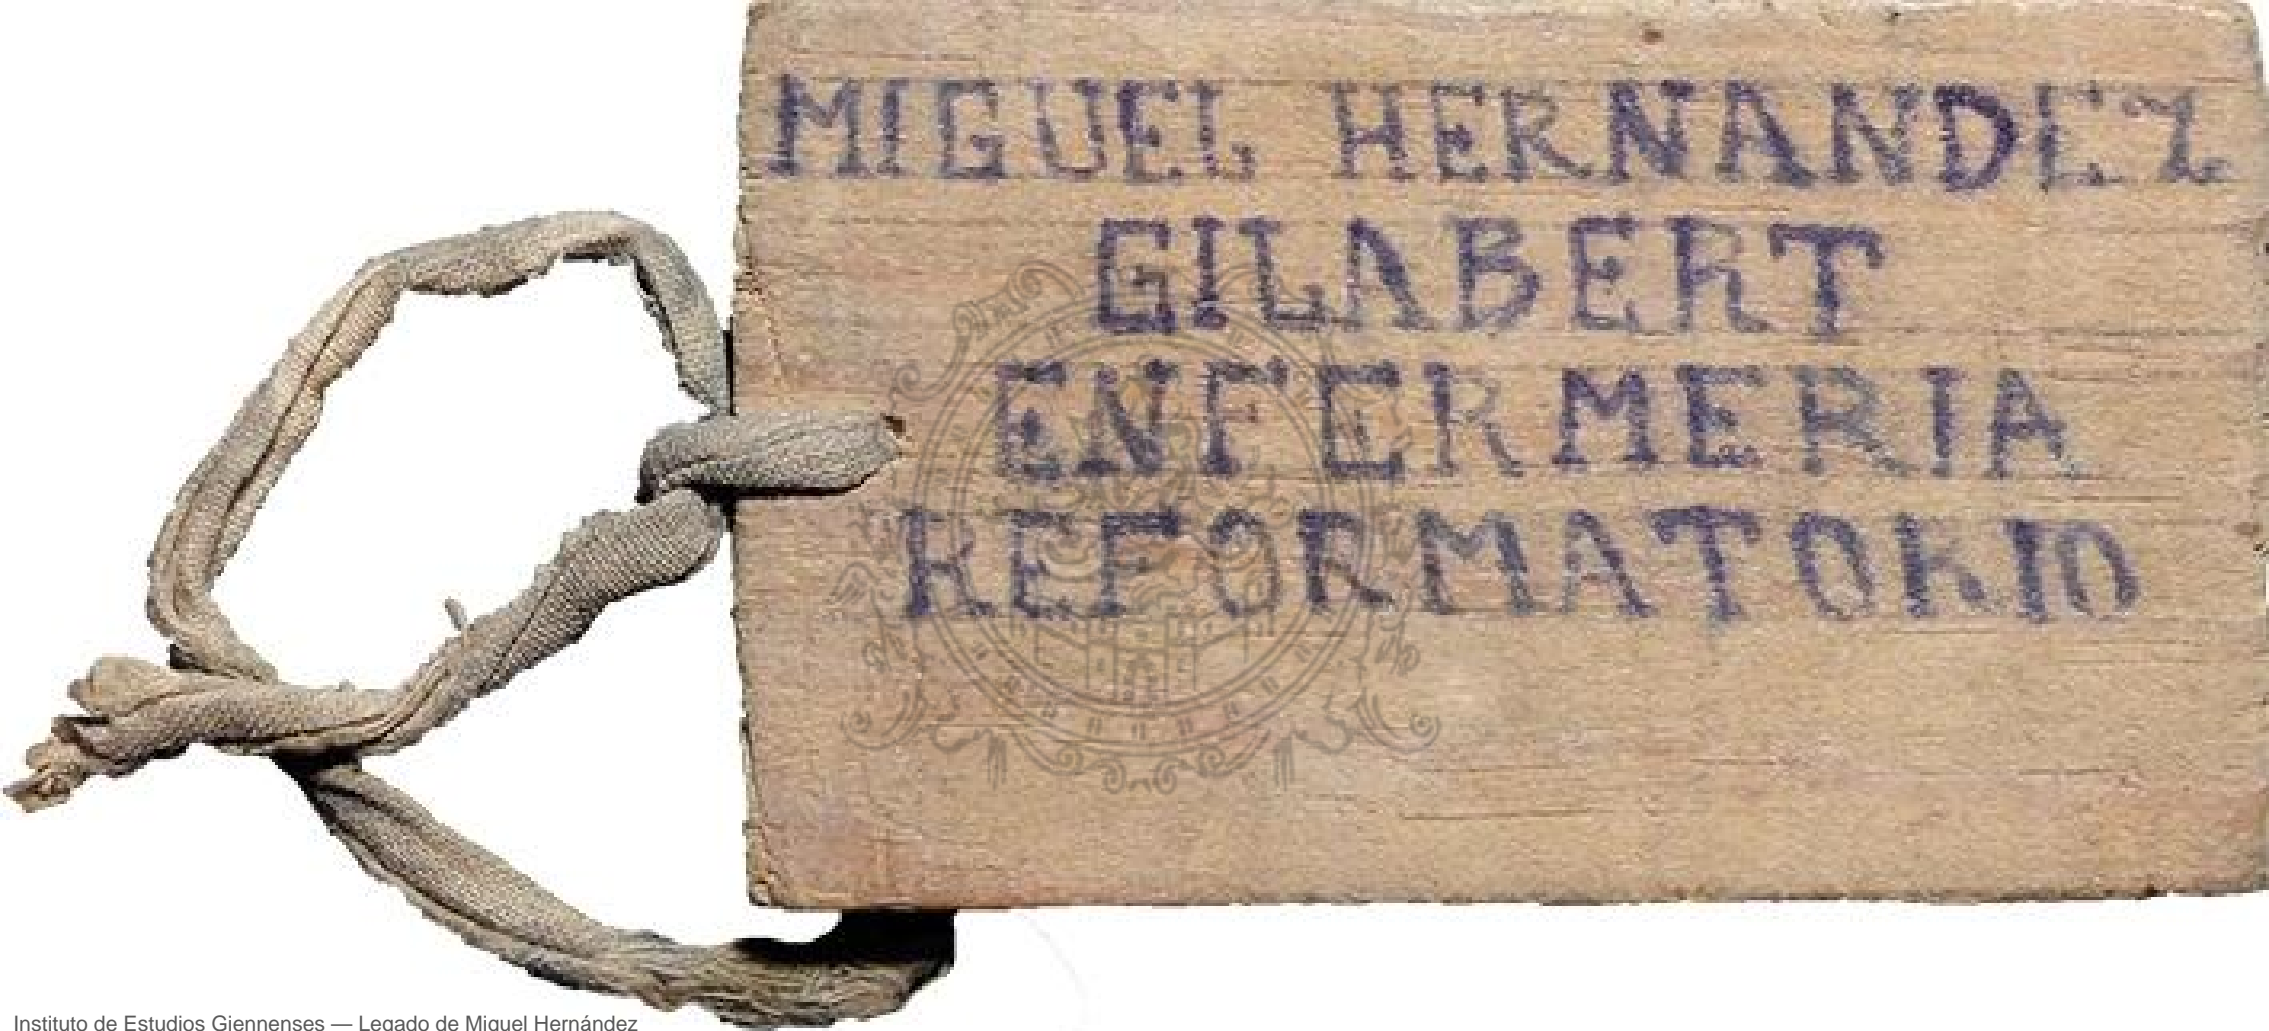 MIGUEL HERNANDEZ
GILABERT
ENFERMERIA
REFORMATORIO
Instituto de Estudios Giennenses — Legado de Miguel Hernández